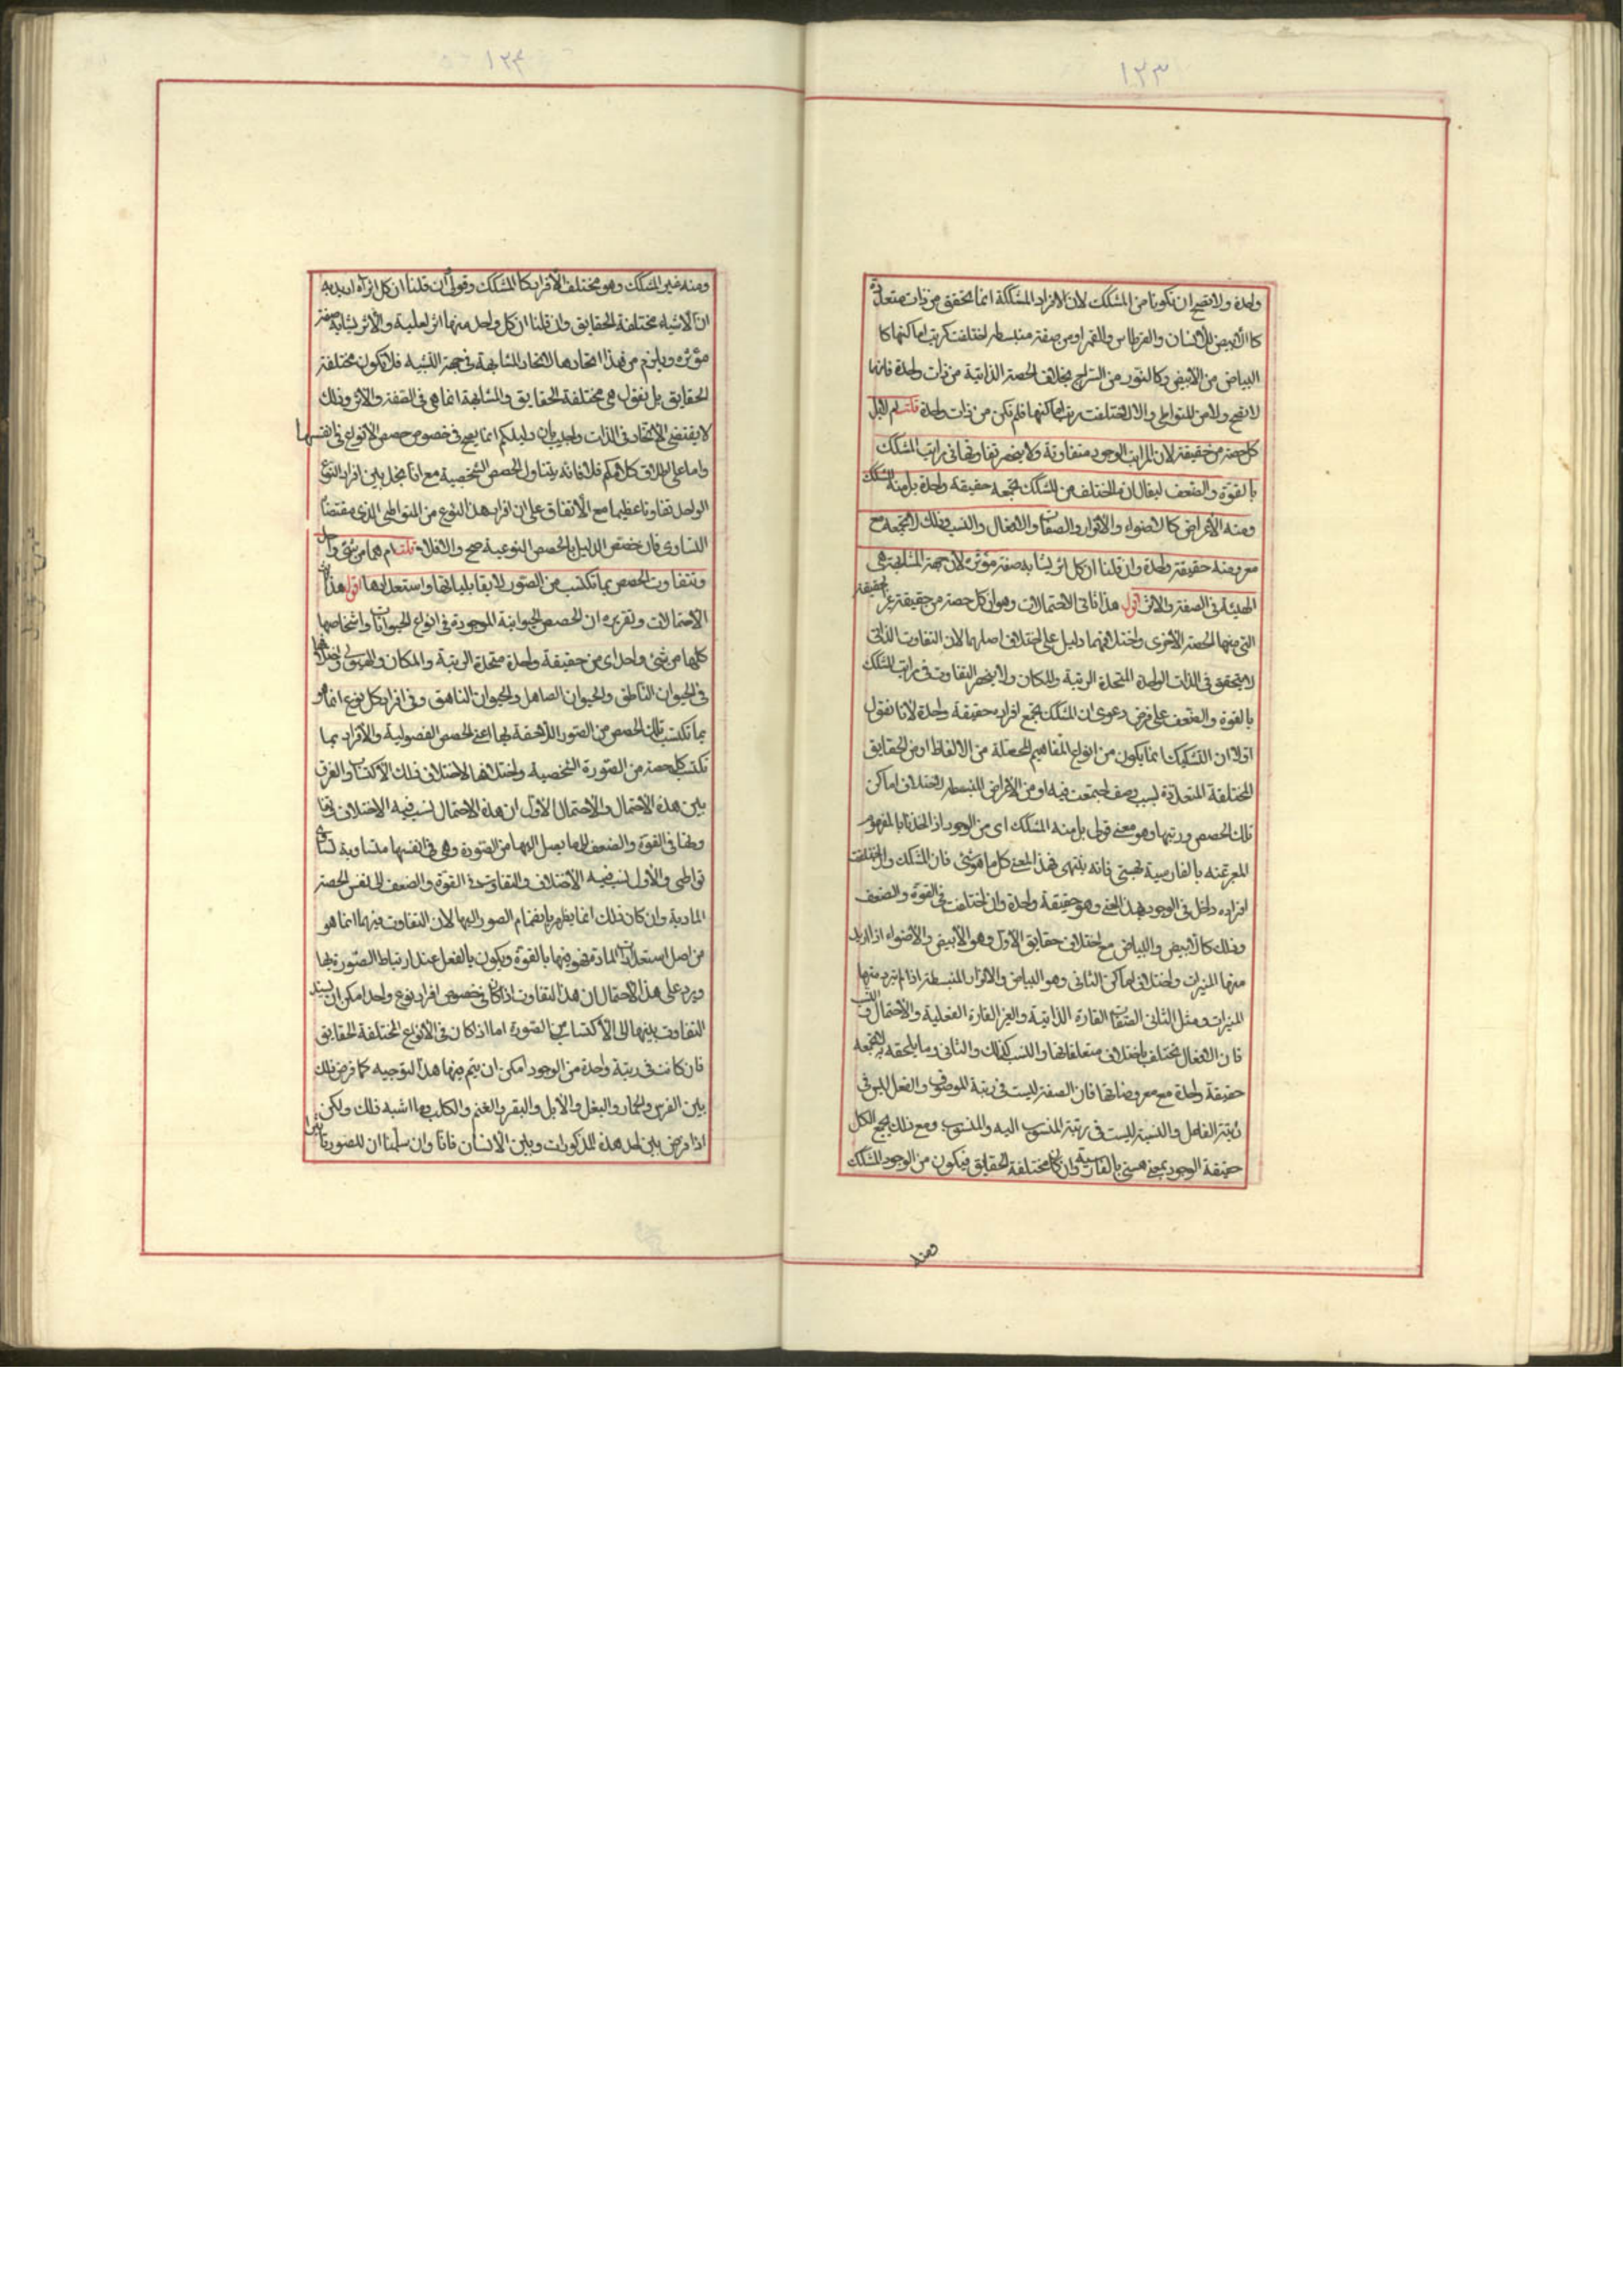 ١٢٣
واحدة ولا يصح ان تكونا من المشكك لان الافراد المشككة انما تحقق من ذات متعددة
كالابيض للانسان والقرطاس والقمر او من صفة منبسطة اختلفت رتب اماكنها كا
البياض من الابيض وكالنور من السراج بخلاف الحصة الذاتية من ذات واحدة فانها
لا تصح ولا من المتواطي والا لما اختلفت رتب اماكنها فلم تكن من ذات واحدة قلت ام
كل حصة من حقيقة لان مراتب الوجود متفاوتة ولا ينحصر تفاوتها في مراتب المشكك
بالقوة والضعف ليقال ان المختلف من المشكك تجمعه حقيقة واحدة بل منه المشكك
ومنه الأعراض كالاضواء والأنوار والصفات والافعال والنسب وذلك لا تجمعه مع
معروضه حقيقة واحدة وان قلنا ان كل اثر يشابه صفة مؤثره لأن جهة المشابهة هي
الهيئة في الصفة والاثر اقول هذا ثاني الاحتمالات وهو ان كل حصة من حقيقة غير الحقيقة
التي منها الحصة الأخرى واختلافهما دليل على اختلاف اصليهما لان التفاوت الذاتي
لا يتحقق في الذات الواحدة المتحدة الرتبة والمكان ولا ينحصر التفاوت في مراتب المشكك
بالقوة والضعف على فرض دعوى ان المشكك تجمع افراده حقيقة واحدة لانا نقول
اولا ان التشكيك انما يكون من انواع المفاهيم المحصلة من الالفاظ او من الحقايق
المختلفة المتعددة لسبب وصف اجتمعت فيه او من الاعراض المنبسطة لاختلاف اماكن
تلك الحصص ورتبها وهو معنى قولي بل منه المشكك اى من الوجود اذا اخذنا بالمفهوم
المعبر عنه بالفارسية بهستي فانه ينتهي بهذا المعنى كل ما هو شئ فان المشكك والمختلفة
افراده داخل في الوجود بهذا المعنى وهو حقيقة واحدة وان اختلفت في القوة والضعف
وذلك كالابيض والبياض مع اختلاف حقايق الأول وهو الأبيض والأضواء اذا اريد
منها المنيرات واختلاف اماكن الثاني وهو البياض والانوار المنبسطة اذا لم نرد منها
المنيرات ومثل الثاني الصفات القارة الذاتية والغير القارة الفعلية والأفعال والنسب
فان الافعال تختلف باختلاف متعلقاتها والنسب كذلك والثاني وما يلحقه لا تجمعه
حقيقة واحدة مع معروضاتها فان الصفة ليست في رتبة الموصوف والفعل ليس في
رتبة الفاعل والنسبة ليست في رتبة المنسوب اليه والمنسوب ومع ذلك يجمع الكل
حقيقة الوجود بمعنى هستي بالفارسية وان كان مختلفة الحقايق فيكون من الوجود المشكك
ومنه
١٢۴
ومنه غير المشكك وهو مختلف الأفراد كالمشكك وقولى ان قلنا ان كل اثر اه اريد به
ان الاشياء مختلفة الحقايق وان قلنا ان كل واحد منها اثر لعلية والأثر يشابه صفة
مؤثره ويلزم من هذا اتحادها لاتحاد المشابهة في جهة التشبيه فلا تكون مختلفة
الحقايق بل نقول هي مختلفة الحقايق والمشابهة انما هي في الصفة والاثر وذلك
لا يقتضي الاتحاد في الذات واجيب بان دليلكم انما يصح في خصوص حصص الانواع في انفسها
واما على اطلاق كلامكم فلا فانه يتناول الحصص الشخصية مع انا نجد بين افراد النوع
الواحد تفاوتا عظيما مع الاتفاق على ان افراد هذا النوع من المتواطي الذى مقتضاه
التساوى فان خصص الدليل بالحصص النوعية صح والا فلا قلت ام هما من شئ واحد
وتتفاوت الحصص بما تكتسب من الصور لا بقابلياتها واستعدادها اقول هذا ثالث
الاحتمالات وتقريره ان الحصص الحيوانية الموجودة في انواع الحيوانات واشخاصها
كلها من شئ واحد اى من حقيقة واحدة متحدة الرتبة والمكان والهيولى واختلافها
في الحيوان الناطق والحيوان الصاهل والحيوان الناهق وفي افراد كل نوع انما هو
بما تكتسب تلك الحصص من الصور اللاحقة بها اعني الحصص الفصولية والأفراد بما
تكتسب كل حصة من الصورة الشخصية واختلافها لاختلاف ذلك الاكتساب والفرق
بين هذه الاحتمال والاحتمال الأول ان هذه الاحتمال نسب فيه الاختلاف وتفا
وتها في القوة والضعف الى ما يصل اليها من الصورة وهي في انفسها متساوية تساوى
تواطى والأول نسب فيه الاختلاف والتفاوت في القوة والضعف الى نفس الحصة
المادية وان كان ذلك انما يظهر بانضمام الصور اليها لان التفاوت فيها انما هو
من اصل استعدادات المادة فهو فيها بالقوة ويكون بالفعل عند ارتباط الصورة بها
ويرد على هذا الاحتمال ان هذا التفاوت اذا كان في خصوص افراد نوع واحد امكن ان يسند
التفاوت بينها الى الأكتساب من الصورة اما اذا كان في الانواع المختلفة الحقايق
فان كانت في رتبة واحدة من الوجود امكن ان يتم فيها هذا التوجيه كما فرض ذلك
بين الفرس والحمار والبغل والأبل والبقر والغنم والكلب وما اشبه ذلك ولكن
اذا فرض بين احد هذه المذكورات وبين الانسان فانا وان سلمنا ان للصورة تأثيرا